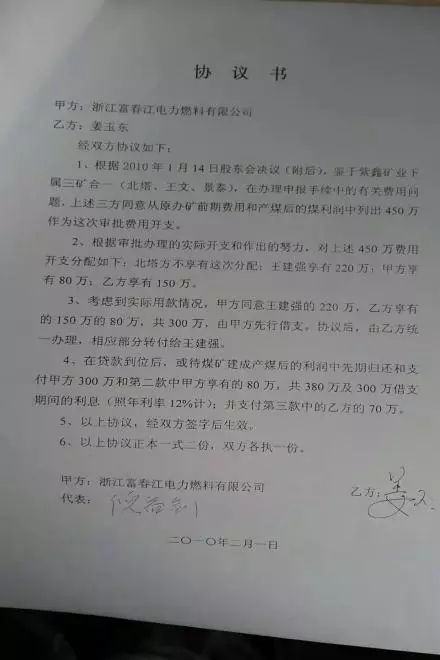 协议书
甲方：浙江富春江电力燃料有限公司
乙方：姜玉东
经双方协议如下：
1、根据2010年1月14日股东会决议（附后），鉴于紫鑫矿业下
属三矿合一（北塔、王文、景泰），在办理申报手续中的有关费用问
题，上述三方同意从原办矿前期费用和产煤后的煤利润中列出450万
作为这次审批费用开支。
2、根据审批办理的实际开支和作出的努力，对上述450万费用
开支分配如下：北塔方不享有这次分配；王建强享有220万；甲方享
有80万；乙方享有150万。
3、考虑到实际用款情况，甲方同意王建强的220万，乙方享有
的150万的80万，共300万，由甲方先行借支。协议后，由乙方统
一办理，相应部分转付给王建强。
4、在贷款到位后，或待煤矿建成产煤后的利润中先期归还和支
付甲方300万和第二款中甲方享有的80万，共380万及300万借支
期间的利息（照年利率12%计）；并支付第三款中的乙方的70万。
5、以上协议，经双方签字后生效。
6、以上协议正本一式二份，双方各执一份。
甲方：浙江富春江电力燃料有限公司
乙方：姜
代表：
二〇一〇年二月一日